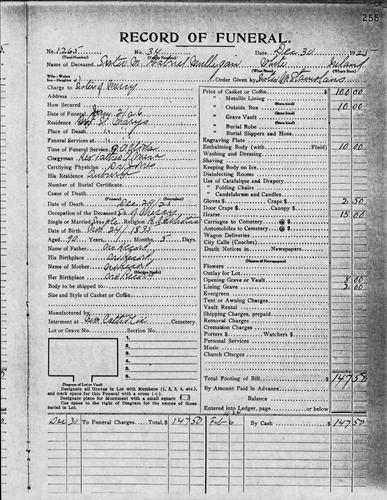 255
RECORD OF FUNERAL.
No. 1265 No. 34 Date Dec 30 1925
(Total Number) (Yearly Number)
Name of Deceased Sister M. Gabriel Mulligan White Ireland
(What Race) (Where Born)
Order Given by
Charge to Sisters of Mercy
Address
How Secured
Date of Funeral
Residence St. Marys
Place of Death
Funeral Services at
Time of Funeral Service
Clergyman Rev.
Certifying Physician Dr.
His Residence Auburn
Number of Burial Certificate
Cause of Death
Date of Death Dec 29/25
Occupation of Deceased
Single or Married Single Religion
Date of Birth Nov. 24/1835
Aged 90 Years 1 Months 5 Days
Name of Father No Record
His Birthplace No Record
Name of Mother No Record
Her Birthplace No Record
Body to be shipped to
Size and Style of Casket or Coffin
Manufactured by
Interment at Cemetery
Lot or Grave No. Section No.
1
2
3
4
5
Diagram of Lot or Vault
Designate all Graves in Lot with Numbers (1, 2, 3, 4, etc.)
and mark space for this Funeral with a cross (+).
Designate place for Monument with a small square
Use space to the right of Diagram for the names of those
buried in Lot.
Price of Casket or Coffin 100.00
" Metallic Lining
" Outside Box 10.00
" Grave Vault
" Burial Robe
" Burial Slippers and Hose
Engraving Plate
Embalming Body (with Fluid) 10.00
Washing and Dressing
Shaving
Keeping Body on Ice
Disinfecting Rooms
Use of Catafalque and Drapery
" Folding Chairs
" Candelabrum and Candles
Gloves $ Crape $ 2.50
Door Crape $ Canopy $
Hearse 15.00
Carriages to Cemetery @ $
Automobiles to Cemetery @ $
Wagon Deliveries
City Calls (Coaches)
Death Notices in Newspapers
(Names of Newspapers)
Flowers
Outlay for Lot
Opening Grave or Vault 8.00
Lining Grave 2.00
Evergreen
Tent or Awning Charges
Vault Rental
Shipping Charges, prepaid
Removal Charges
Cremation Charges
Porters $ Watchers $
Personal Services
Music
Church Charges
Total Footing of Bill $ 147.50
By Amount Paid in Advance
Balance
Entered into Ledger, page or below.
Dec 30 To Funeral Charges $ 147 50 Feb 6 By Cash $ 147.50